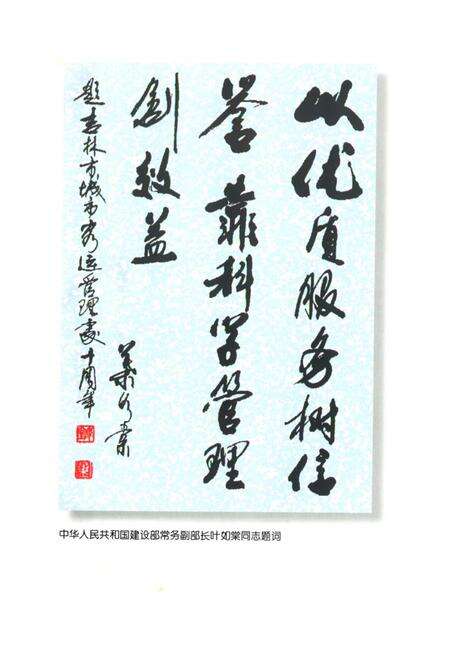 以优质服务树信
誉靠科学管理
创效益
叶如棠
题吉林市城市客运管理处十周年
中华人民共和国建设部常务副部长叶如棠同志题词